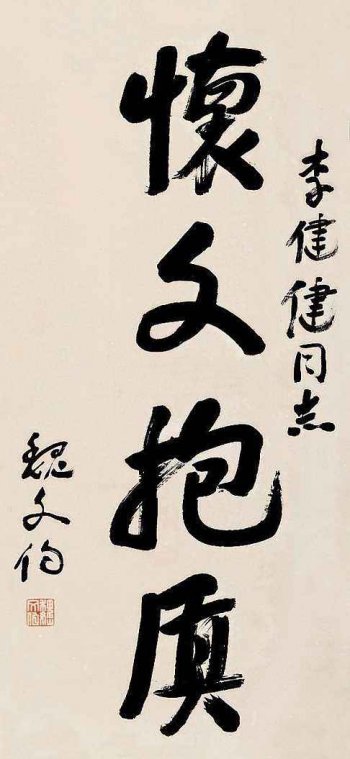 李健健同志
懷文抱质
魏文伯